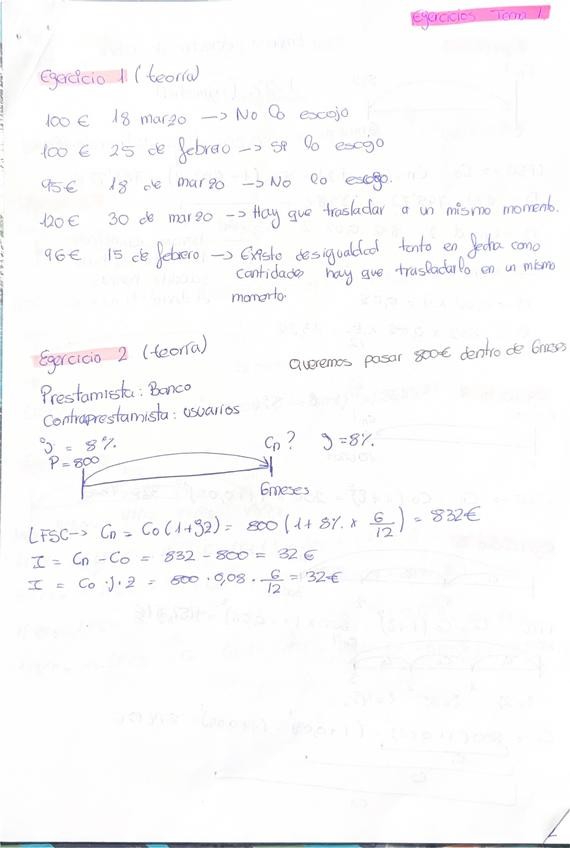 Ejercicios Tema 1
Ejercicio 1 (teoría)
100 € 18 marzo → No lo escojo
100 € 25 de febrero → si lo escojo
95 € 18 de marzo → No lo escojo.
120 € 30 de marzo → Hay que trasladar a un mismo momento.
96 € 15 de febrero → Existe desigualdad tanto en fecha como
cantidades hay que trasladarlo en un mismo
momento.
Ejercicio 2 (teoría)
Queremos pasar 800€ dentro de 6 meses
Prestamista: Banco
Contraprestamista: usuarios
j = 8%
P = 800
Cn? j = 8%
6 meses
LFSC → Cn = Co (1+jz) = 800 (1 + 8% x 6/12) = 832€
I = Cn - Co = 832 - 800 = 32 €
I = Co · j · z = 800 · 0,08 · 6/12 = 32€